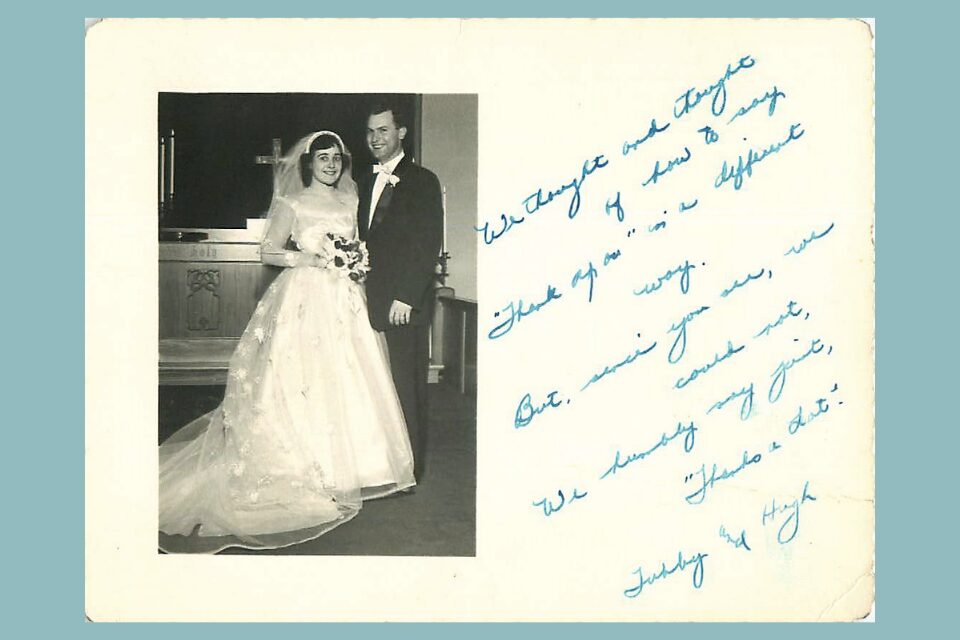 Holy
We thought and thought
of how to say
"Thank " in a different
way.
But, since you see, we
could not,
We humbly say just,
"Thanks a Lot".
Tubby and Hugh